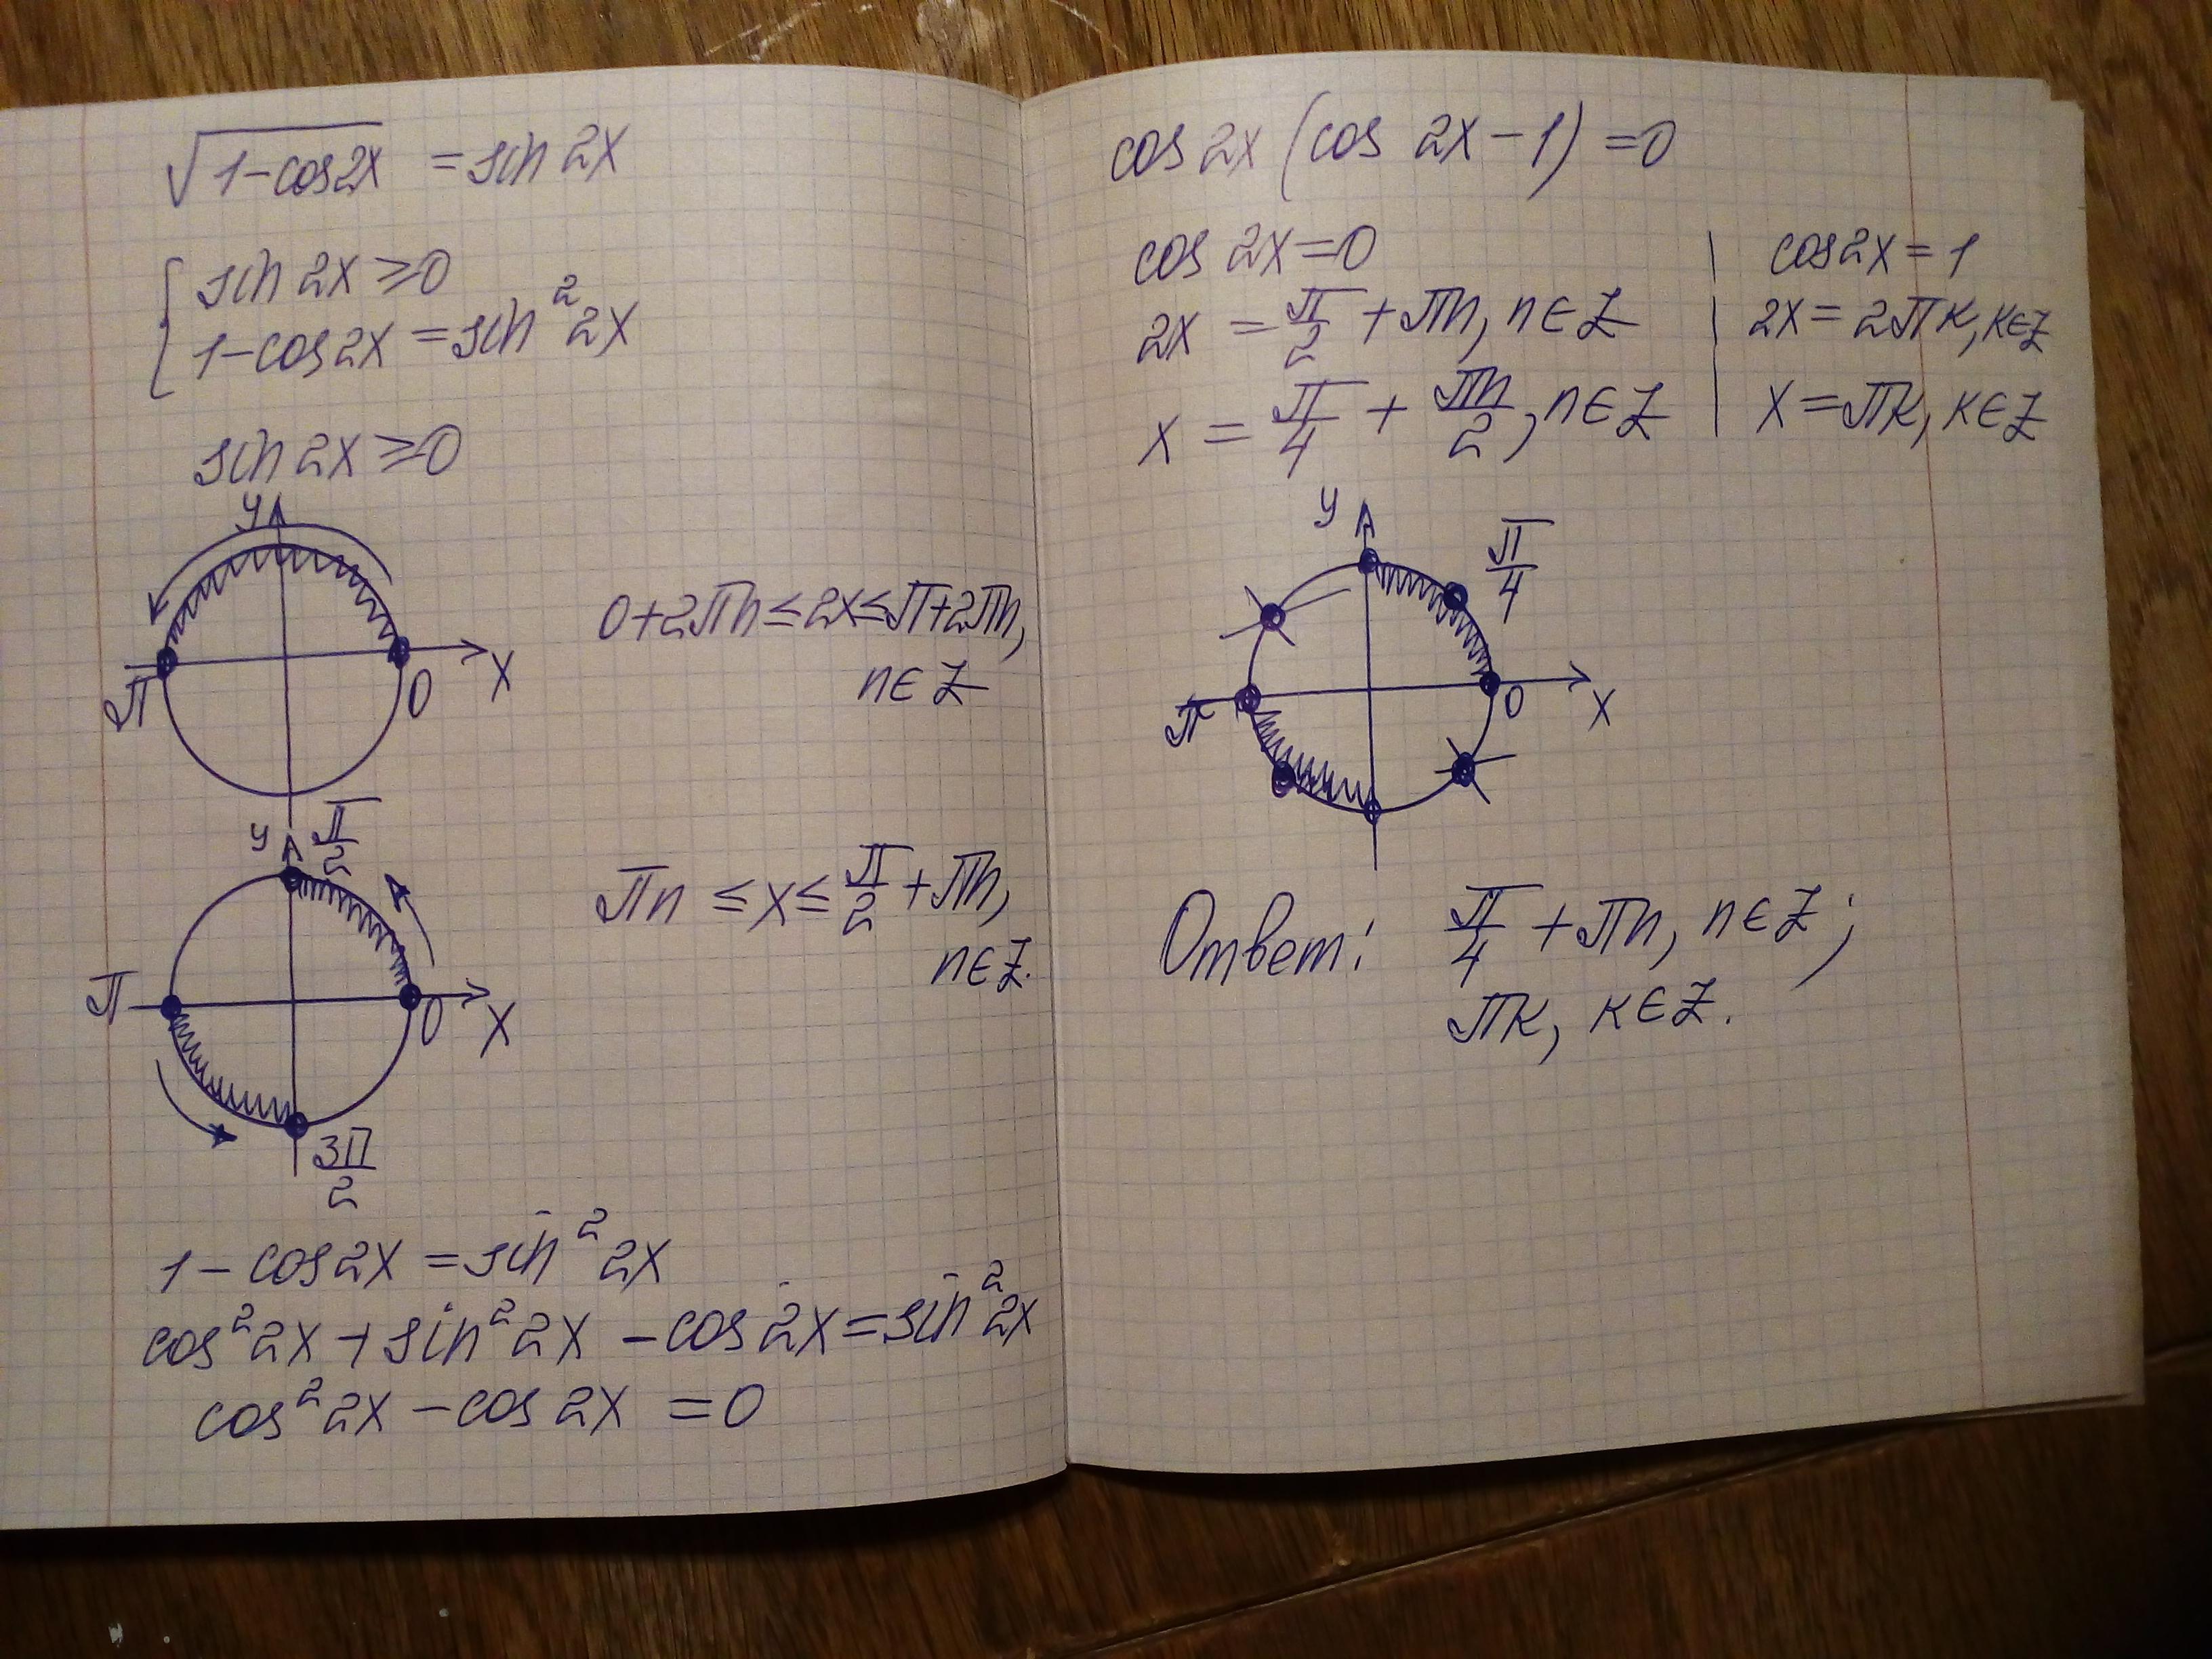 √(1-cos2x) = sin 2x
{ sin 2x ≥ 0
1-cos2x = sin² 2x
sin 2x ≥ 0
y
π
0
x
0+2πn ≤ 2x ≤ π+2πn,
n ∈ Z
y
π/2
π
0
x
3π/2
πn ≤ x ≤ π/2 + πn,
n ∈ Z.
1 - cos2x = sin² 2x
cos² 2x + sin² 2x - cos 2x = sin² 2x
cos² 2x - cos 2x = 0
cos 2x (cos 2x - 1) = 0
cos 2x = 0 | cos2x = 1
2x = π/2 + πn, n ∈ Z | 2x = 2πк, к ∈ Z
x = π/4 + πn/2, n ∈ Z | x = πк, к ∈ Z
y
π/4
π
0
x
Ответ: π/4 + πn, n ∈ Z;
πк, к ∈ Z.